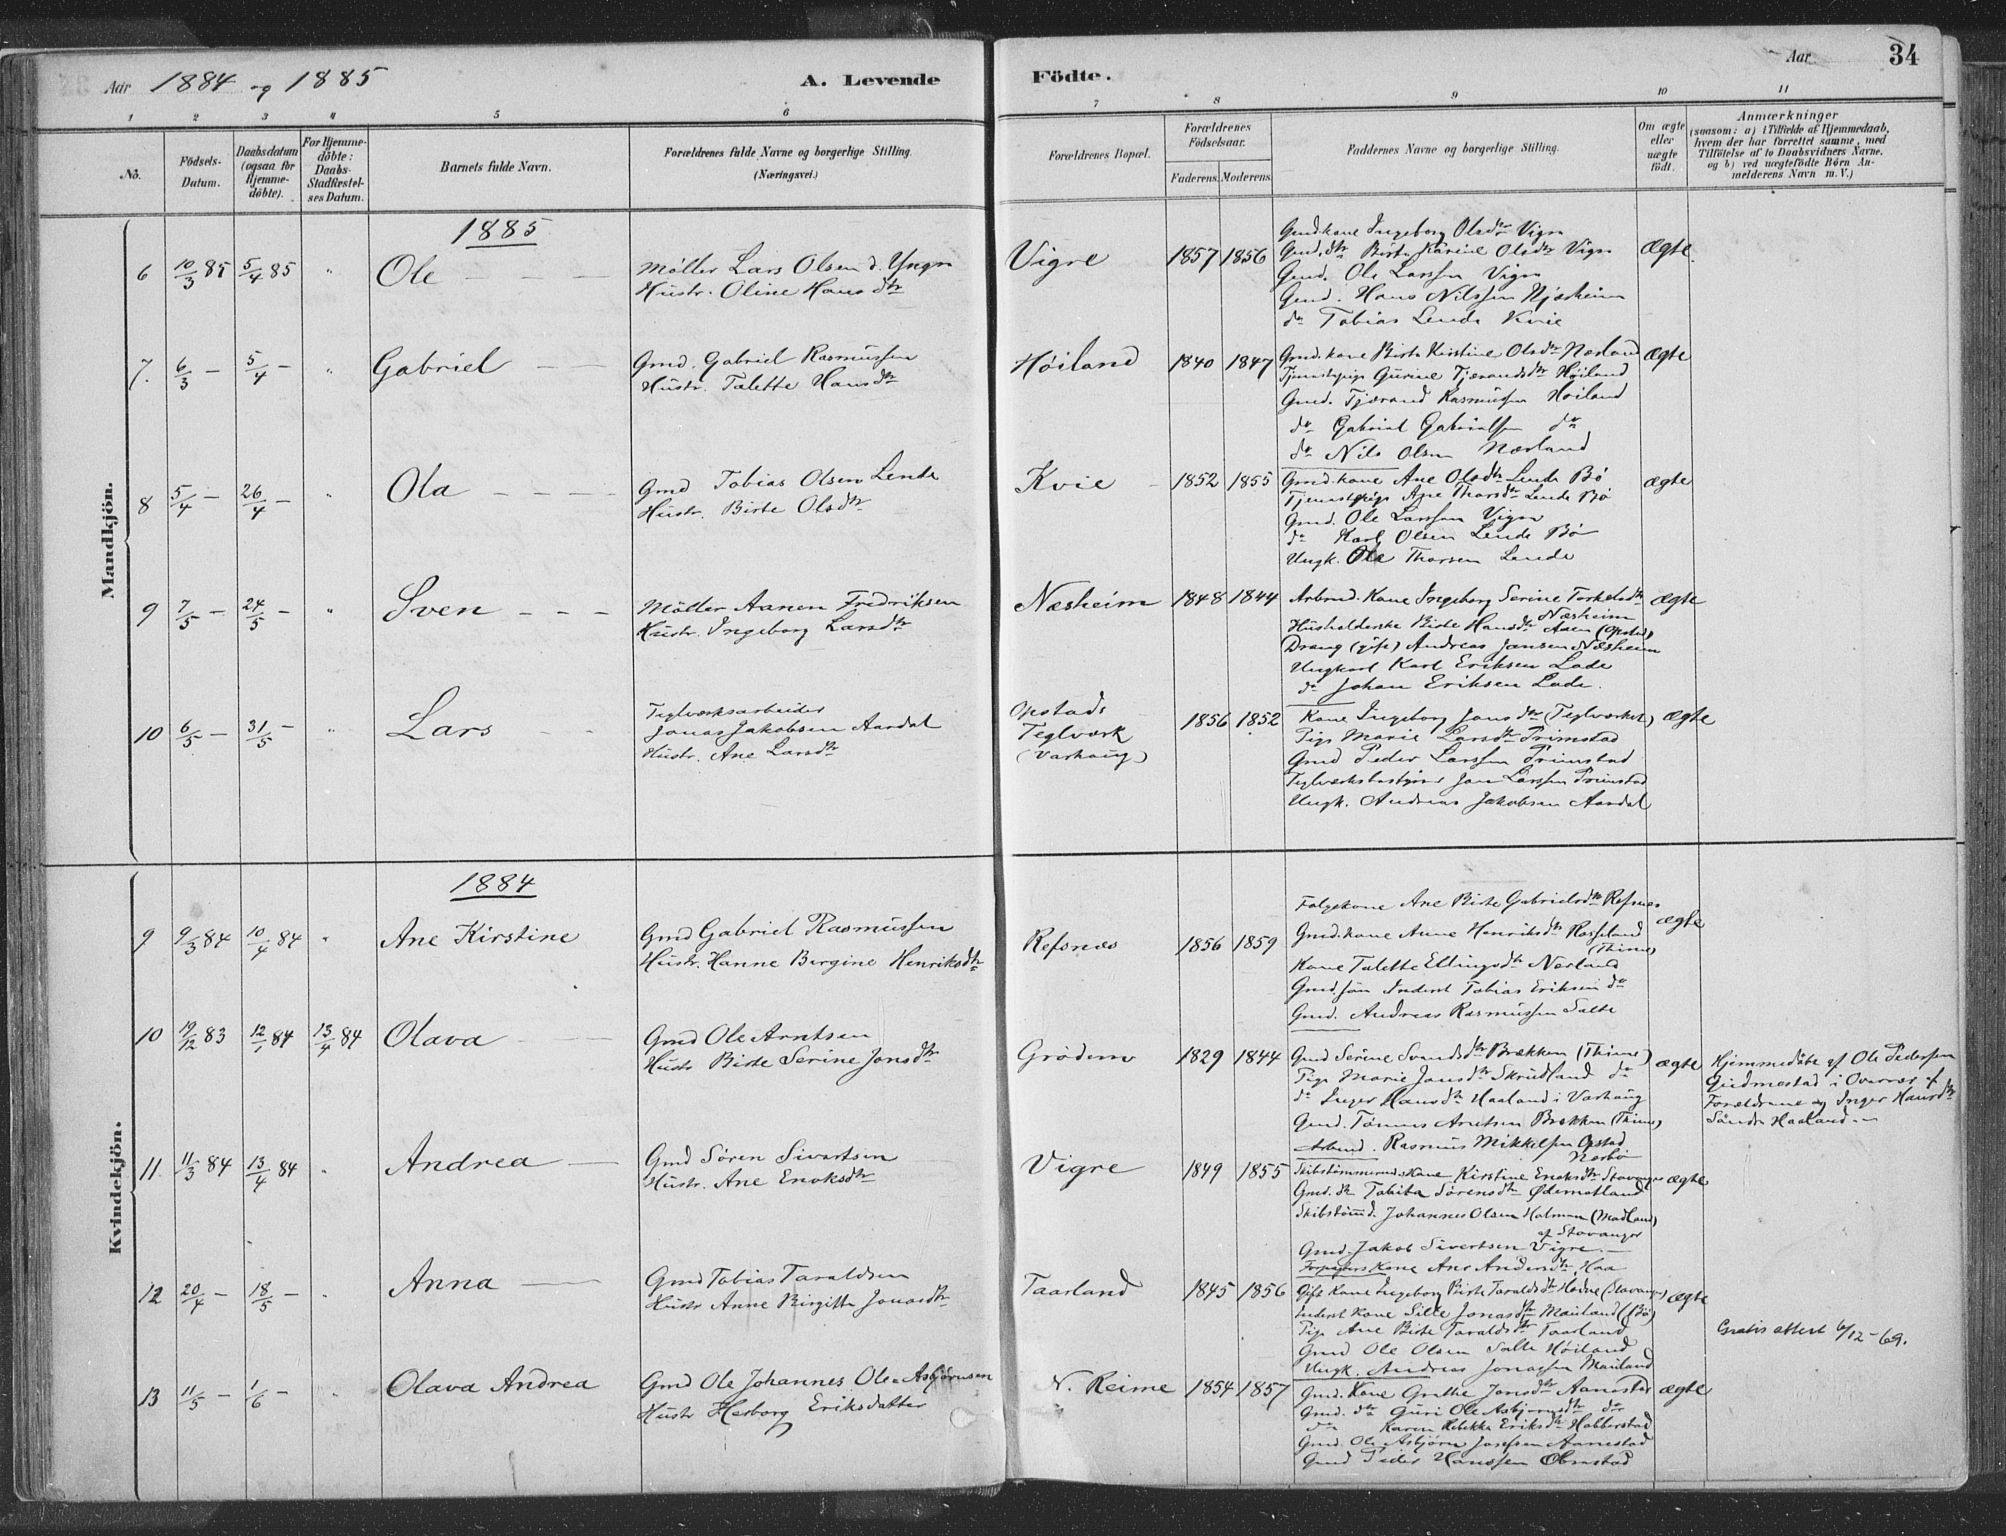 Aar 1884 og 1885
A. Levende Födte.
Aar
34
1 2 3 4 5 6 7 8 9 10 11
No.
Födsels-Datum.
Daabsdatum (ogsaa for Hjemme-döbte).
For Hjemme-döbte: Daabs-Stadfæstel-ses Datum.
Barnets fulde Navn.
Forældrenes fulde Navne og borgerlige Stilling.
(Næringsvei.)
Forældrenes Bopæl.
Forældrenes Födselsaar.
Faderens. Moderens.
Faddernes Navne og borgerlige Stilling.
Om ægte eller uægte født.
Anmærkninger
(saasom: a) i Tilfælde af Hjemmedaab, hvem der har forrettet samme, med Tilföielse af to Daabsvidners Navne, og b) ved uægtefödte Börn An-melderens Navn m. V.)
Mandkjön.
1885
6 10/3 85 5/4 85 " Ole
Møller Lars Olsen d. Yngr
Hustr. Oline Hansdtr
Vigre 1857 1856
Gmdkone Ingeborg Olsdtr Vigre
Gmd.dtr Birte Karine Olsdtr Vigre
Gmd. Ole Larssen Vigre
Gmd. Hans Nilssen Njæsheim
do Tobias Lende Kvie
ægte.
7. 6/3 – 5/4 – " Gabriel
Gmd. Gabriel Rasmussen
Hustr. Talette Hansdtr
Høiland 1840 1847
Gmd.kone Birte Kirstine Olsdtr Nærland
Tjenestepige Gurine Tjærandsdtr Höiland
Gmd. Tjærand Rasmussen Höiland
do Gabriel Gabrielssen do
do Nils Olsen Nærland
ægte
8 5/4 – 26/4 – " Ola
Gmd Tobias Olsen Lende
Hustr. Birte Olsdtr
Kvie 1852 1855
Gmdkone Ane Olsdtr Lende Bö
Tjenestepige Ane Thorsdtr Lende Bö
Gmd. Ole Larssen Vigre
do Karl Olsen Lende Bö
Ungk. Ole Thorsen Lende
ægte
9 7/5 – 24/5 – " Sven
Möller Aanen Fredriksen
Hustr. Ingeborg Larsdtr
Næsheim 1848 1844
Arbmd. Kone Ingeborg Serine Torkelsdtr
Næsheim
Husholderske Birte Hansdtr Aaen (Opstad)
Dreng (gift) Andreas Jansen Næsheim
Ungkarl Karl Eriksen Lode
do Johan Eriksen Lode.
ægte
10 6/5 – 31/5 – " Lars
Teglværksarbeider
Jonas Jakobsen Aardal
Hustr. Ane Larsdtr
Opstads
Teglværk
(Varhaug)
1856 1852
Kone Ingeborg Jonsdtr (Teglværket)
Pige Marie Larsdtr Primstad
Gmd Peder Larssen Primstad
Teglværksbestyrer Jon Larssen Primstad
Ungk. Andreas Jakobsen Aardal
ægte
Kvindekjön.
1884
9 9/3 84 10/4 84 " Ane Kirstine
Gmd Gabriel Rasmussen
Hustr. Hanne Bergine Henriksdtr
Refsnæs 1856 1859
Folgekone Ane Birte Gabrielsdtr Refsnes
Gmd.kone Anne Henriksdtr Rosseland
(Thime)
Kone Talette Ellingsdtr Nærland
Gmd.sön Inderst Tobias Eriksen do
Gmd. Andreas Rasmussen Salte
ægte
10 19/12 83 12/1 84 13/4 84 Olava
Gmd Ole Arntsen
Hustr Birte Serine Jonsdtr
Grödem 1829 1844
Gmd Serine Svendsdtr Brækken (Thime)
Pige Marie Jonsdtr Skrudland do
do Inger Hansdtr Haaland i Varhaug
Gmd. Tönnes Arntsen Brækken (Thime)
Arbmd. Rasmus Mikkelsen Opstad
Nærbö
ægte
Hjemmedöbt af Ole Pedersen
Gudmestad i Overvær af
Forældrene og Inger Hansdtr
Söndre Haaland.
11. 11/3 84 13/4 84 " Andrea
Gmd Sören Sivertsen
Hustr. Ane Enoksdtr
Vigre 1849 1855
Skibstömmermd.s Kone Kirstine Enoksdtr Stavanger
Gmd.dtr Tobita Sörensdtr Ödemotland
Skibstömd. Johannes Olsen Holman (Madland)
af Stavanger
Gmd. Jakob Sivertsen Vigre.
Forpagters Kone Ane Andersdtr Haa
ægte
12 20/4 – 18/5 – " Anna
Gmd Tobias Taraldsen
Hustr Anne Birgitte Jonasdtr
Taarland 1845 1856
Gift Kone Ingeborg Birte Taraldsdtr Hodne (Stavanger)
Inderst Kone Sille Jonasdtr Mauland (Bö)
Pige Ane Birte Taraldsdtr Taarland
Gmd Ole Olsen Salte Höiland
Ungk. Andreas Jonassen Mauland
ægte
Gratis attest 6/12-69.
13 11/5 – 1/6 – " Olava Andrea
Gmd Ole Johannes Ole-Asbjørnsen
Hustr Herborg Eriksdatter
N. Reime 1854 1857
Gmd. Kone Grethe Jonsdtr Aanestad
Gmd. dtr Guri Ole Asbjørnsdtr do
do Karen Rebekka Eriksdtr Hobberstad
Gmd. Ole Asbjörn Josefsen Aanestad
Gmd Peder Hanssen Obrestad
ægte